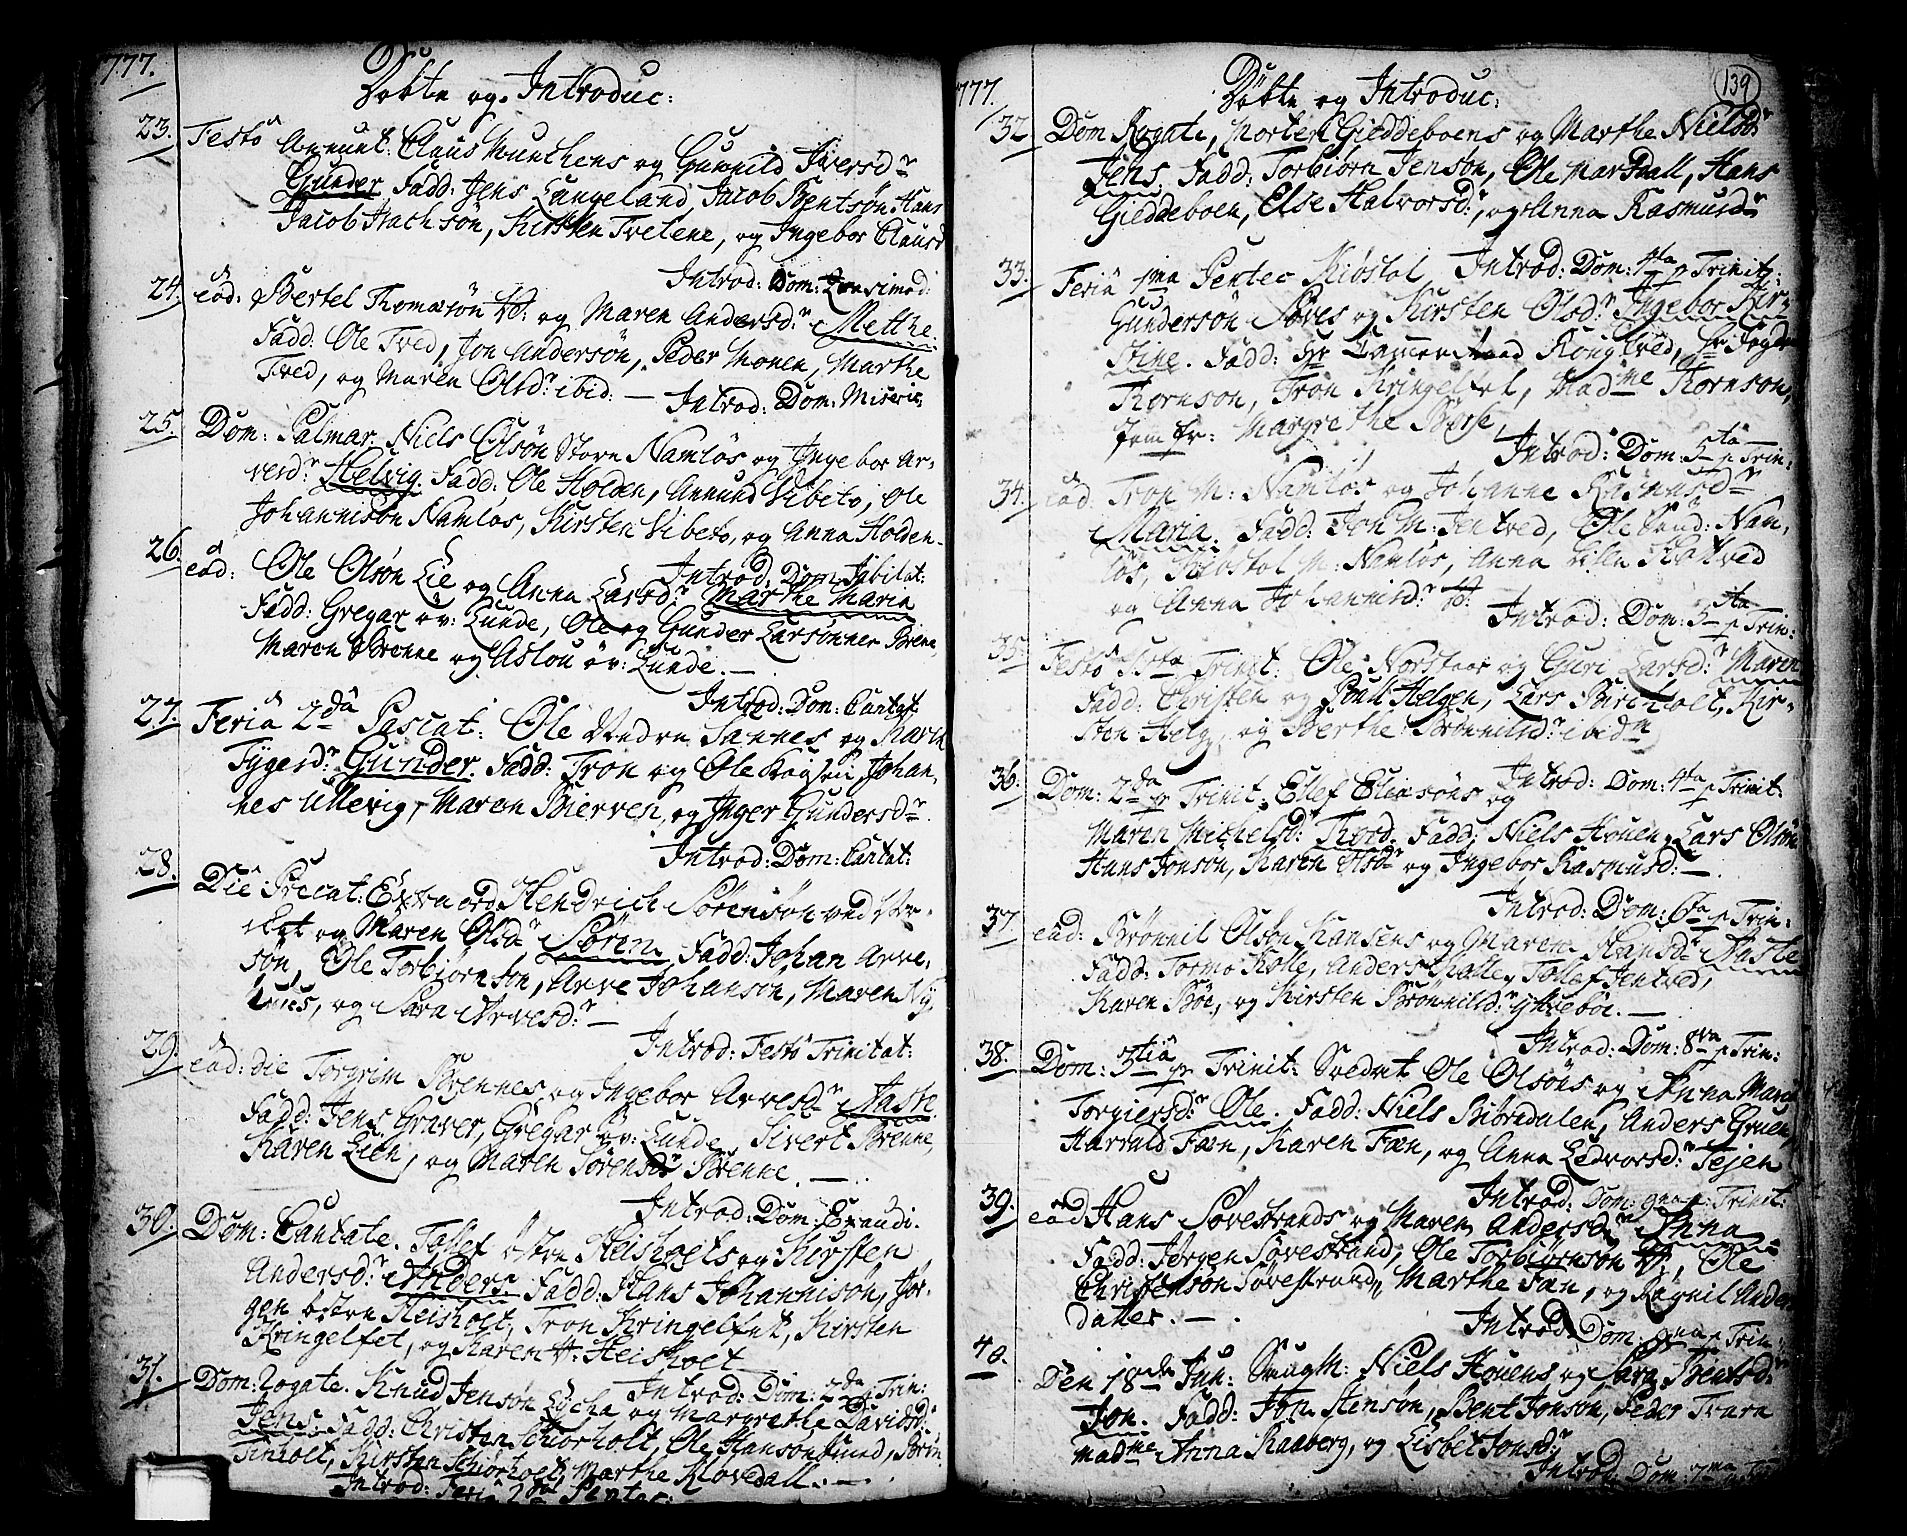 777.
Döbte og Introduc:
23. Festo Annunt: Claus Munthens og Gunnild Iversdr
Gunder Fadd: Jens Langeland, Jacob Bentsøn, Hans
Jacob Hachson, Kirsten Tvetene, og Ingebor Clausd
Introd: Dom: Quasimod:
24. eod: Bertel Thomasøn og Maren Andersdr Methe.
Fadd: Ole Tved, Jon Andersøn, Peder Monen, Marthe
Tved, og Maren Olsdr ibid. — Introd: Dom: Miseric:
25. Dom: Palmar. Niels Olsøn Store Namløs og Ingebor Ar-
vesdr Helvig. Fadd: Ole Holden, Annund Vibeto, Ole
Johannisøn Namløs, Kirsten Vibeto, og Anna Holden.
Introd. Dom. Jubilat:
26. eod: Ole Olsøn Lie og Anna Larsdr Marthe Maria
Fadd: Gregar öv: Lunde, Ole og Gunder Larsønner Brenne,
Maren Brenne og Aslou öv: Lunde. —
Introd: Dom: Cantat.
27. Feriâ 2dâ Pascat: Ole Nedre Sannes og Karen
Tygesdr Gunder. Fadd: Tron og Ole Johan,
nes Ullevig, Maren Bierven, og Inger Gundersdr.
Introd: Dom: Cantat:
28. Die Precat: Extraord Hendrich Sörensön ved Ver-
ket og Maren Olsdr Sören. Fadd: Johan Arve-
søn, Ole Torbiörnsön, Arve Johansön, Maren Ny-
, og Sara Arvesdr —
Introd: Festo Trinitat:
29. eod: die Torgrim Brennes og Ingebor Arvesdr Aaste.
Fadd: Jens Graver, Gregar öv: Lunde, Sivert Brenne,
Karen Lien, og Maren Sørensdr Brenne. —
Introd: Dom: Exaudi.
30. Dom: Cantate. Tollef östre Heisholts og Kirsten
Andersdr Anders. Fadd: Hans Johannisön, Jör-
gen östre Heisholt, Tron Kringelfet, Kirsten
Kringelfet, og Karen Heisholt
Introd: Dom: 2da p Trin:
31. Dom: Rogate. Knud Jensøn Lycka og Margrethe Davidsd:
Jens. Fadd: Christen Schiörholt, Ole Hanson Sund, Brön
Tinholt, Kirsten Schiörholt, Marthe Klovedall. —
Introd: Feriâ 2da Pentec:
777.
139
Döbte og Introduc:
32 Dom Rogate, Morten Gieddeboens og Marthe Nielsdr
Jens. Fadd: Torbiörn Jensøn, Ole Mardall, Hans
Gieddeboen, Else Halvorsdr, og Anna Rasmusdr
Introd: Dom: 4ta p Trinit:
33. Feriâ 1ma Pentec Kiöstol
Gundersön Söves og Kirsten Olsdr Ingebor Kir-
stine. Fadd: Hr Cammerraad Kongtved, Hr Foged
Thornson, Tron Kringelfet, Madme Thornson,
Jomfr: Margrethe Börse,
Introd: Dom: 5ta p Trin:
34. eod Tron M: Namløs og Johanne Rasmusdr
Maria. Fadd: Jon M: Jentved, Ole Sund: Nam,
løs, Kiöstol M: Namløs, Anna lille Kattved
og Anna Johannisdr
Introd: Dom: 5ta p Trin:
35. Festo Trinit: Ole Norstaas og Guri Larsdr Maren
Fadd: Christen og Poul Helgen, Lars Birkholt, Kir-
sten Helg, og Berthe Brönnilsdr ibidm
Introd: Dom: 4ta p Trinit:
36. Dom: 2da p Trinit: Ellef Eliasöns og
Maren Michelsdr Thord. Fadd: Niels Houen, Lars Olsøn
Hans Jonsøn, Karen Olsdr og Ingebor Rasmusd: —.
Introd: Dom: 6ta p Trin:
37. eod: Brönnil Olsön Kansens og Maren Hansdr Aaste
Fadd: Tormo Kolle, Anders Kolle, Tollef Jentved,
Karen Böe, og Kirsten Brönnilsdr ytreböe. —
Introd: Dom: 8va p Trin:
38. Dom: 3tiâ p Trinit: Soldat Ole Olsöns og Anna Maria
Torgiersdr Ole. Fadd: Niels Biörndalen, Anders Gruen,
Harrald Fæn, Karen Fæn, og Anna Ledvorsdr Tejen
Introd: Dom: 9na p: Trinit:
39. eod Hans Søvestrands og Maren Andersdr Anna
Fadd: Jørgen Søvestrand, Ole Torbiornson, Ole
Christensøn Søvestrand, Marthe Fæn, og Ragnil Anders
datter. —.
Introd: Dom: 9na p Trin:
40. Den 18de Jun: Niels Houens og Sara Bentsdr
Jon. Fadd: Jon Stensøn, Bent Jonsøn, Peder Trara
Madme Anna Raaberg, og Lisbet Jonsdr
Introd: Dom: 7ma p Trin